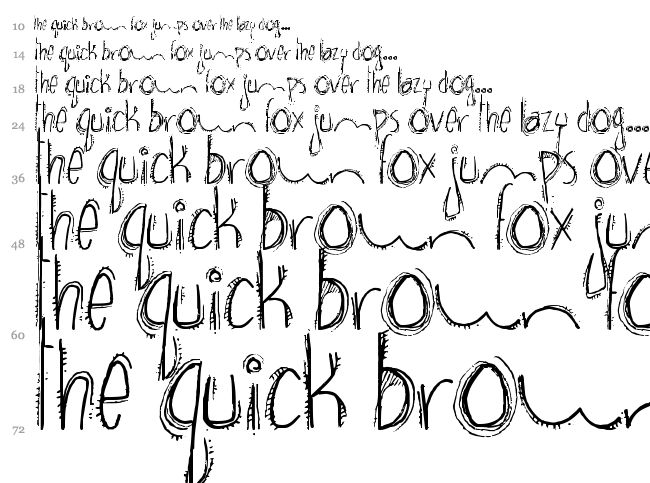 10 the quick brown fox jumps over the lazy dog...
14 the quick brown fox jumps over the lazy dog...
18 the quick brown fox jumps over the lazy dog...
24 the quick brown fox jumps over the lazy dog...
36 the quick brown fox jumps ove
48 the quick brown fox jur
60 the quick brown fo
72 the quick brown